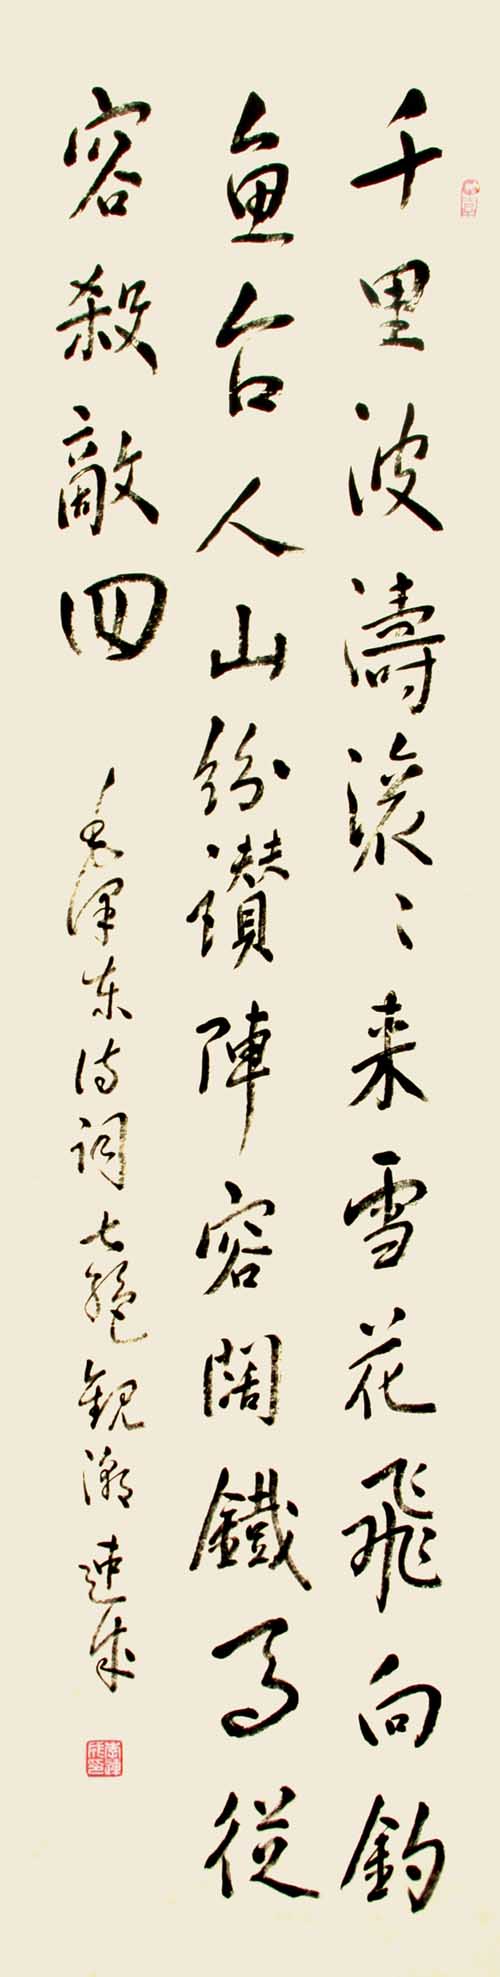 千里波濤滾〻来雪花飛向釣
鱼台人山紛讚陣容闊鐵馬從
容殺敵回
毛澤东诗词七絶觀潮 連成